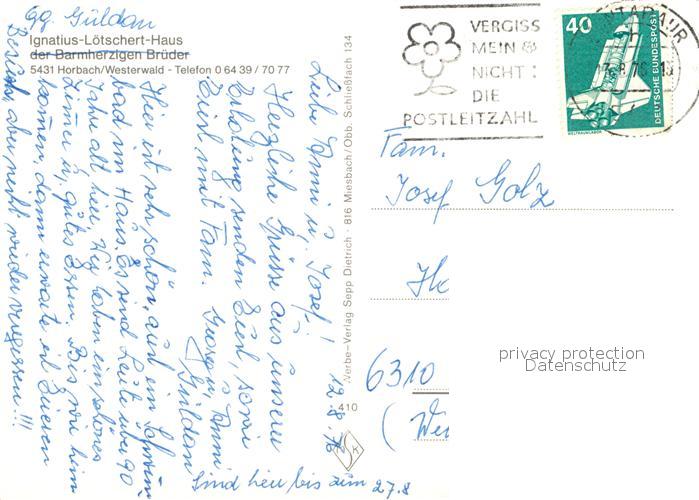 gg. Güldan
Ignatius-Lötschert-Haus
der Barmherzigen Brüder
5431 Horbach/Westerwald - Telefon 0 64 39 / 70 77
12.8.76
Liebe Anni u. Josef!
Herzliche Grüsse aus unserer
Erholung senden Euch, sowie
Eich mit Fam. Georg u. Anni
Güldan
Hier ist sehr schön, auch ein Schwimm
bad im Haus. Es sind Leute über 90
Jahre alt hier. Wir haben ein schönes
Zimer u. gutes Essen. Bis wir heim
kommen, dann erwarte ich Eueren
Besuch, aber nicht wieder vergessen!!!
Sind hier bis zum 27.8
Werbe-Verlag Sepp Dietrich · 816 Miesbach/Obb. Schließfach 134
410
VERGISS
MEIN
NICHT:
DIE
POSTLEITZAHL
40
DEUTSCHE BUNDESPOST
WELTRAUMLABOR
Fam.
Josef Golz
6310
privacy protection
Datenschutz